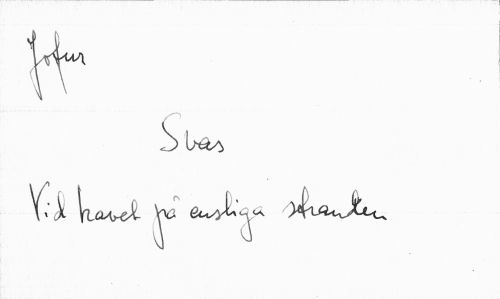 Jofur
Svas
Vid havet på ensliga stranden